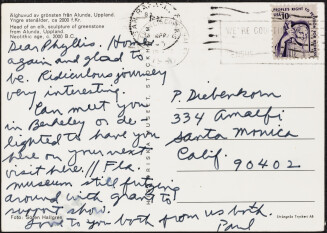 Älghuvud av grönsten från Alunda, Uppland.
Yngre stenålder, ca 2000 f.Kr.
Head of an elk, sculpture of greenstone
from Alunda, Uppland.
Neolithic age, c. 2000 B.C.
Dear Phyllis. Home
again and glad to
be. Ridiculous journey
very interesting.
Can meet you
in Berkeley or de-
lighted to have you
here on your next
visit here. // Fla.
museum still futzing
around with grants to
support show.
Love to you both from us both.
Paul
Foto: Sören Hallgren
P. Diebenkorn
334 Amalfi
Santa Monica
Calif.
90402
10c